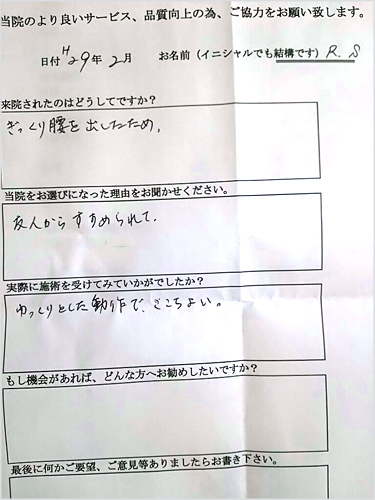 当院のより良いサービス、品質向上の為、ご協力をお願い致します。
日付 H29年 2月 お名前(イニシャルでも結構です) R.S
来院されたのはどうしてですか?
ぎっくり腰を出したため。
当院をお選びになった理由をお聞かせください。
友人からすすめられて。
実際に施術を受けてみていかがでしたか?
ゆっくりとした動作で、ここちよい。
もし機会があれば、どんな方へお勧めしたいですか?
最後に何かご要望、ご意見等ありましたらお書き下さい。